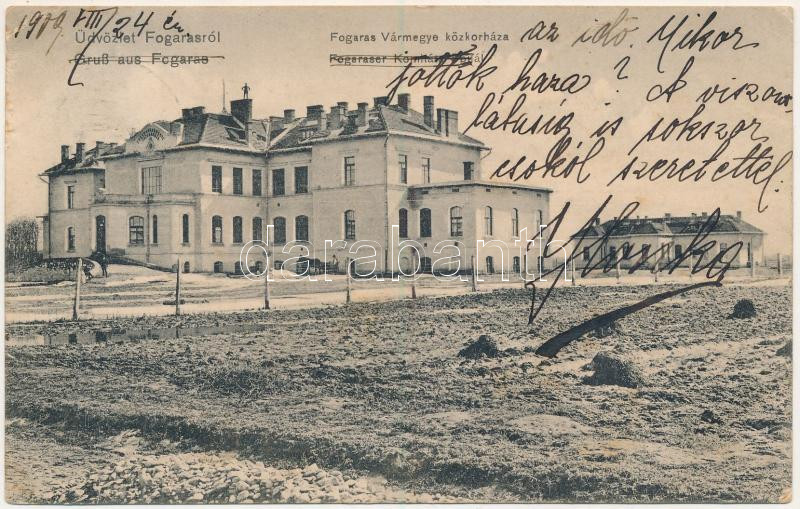 1909 VIII/24 én.
Üdvözlet Fogarasról
Gruß aus Fogaras
Fogaras Vármegye közkorháza
Fogaraser Komitats
az idő. Mikor
jöttök haza? A viszont
látásig is sokszor
csokól szeretettel.
carabanti